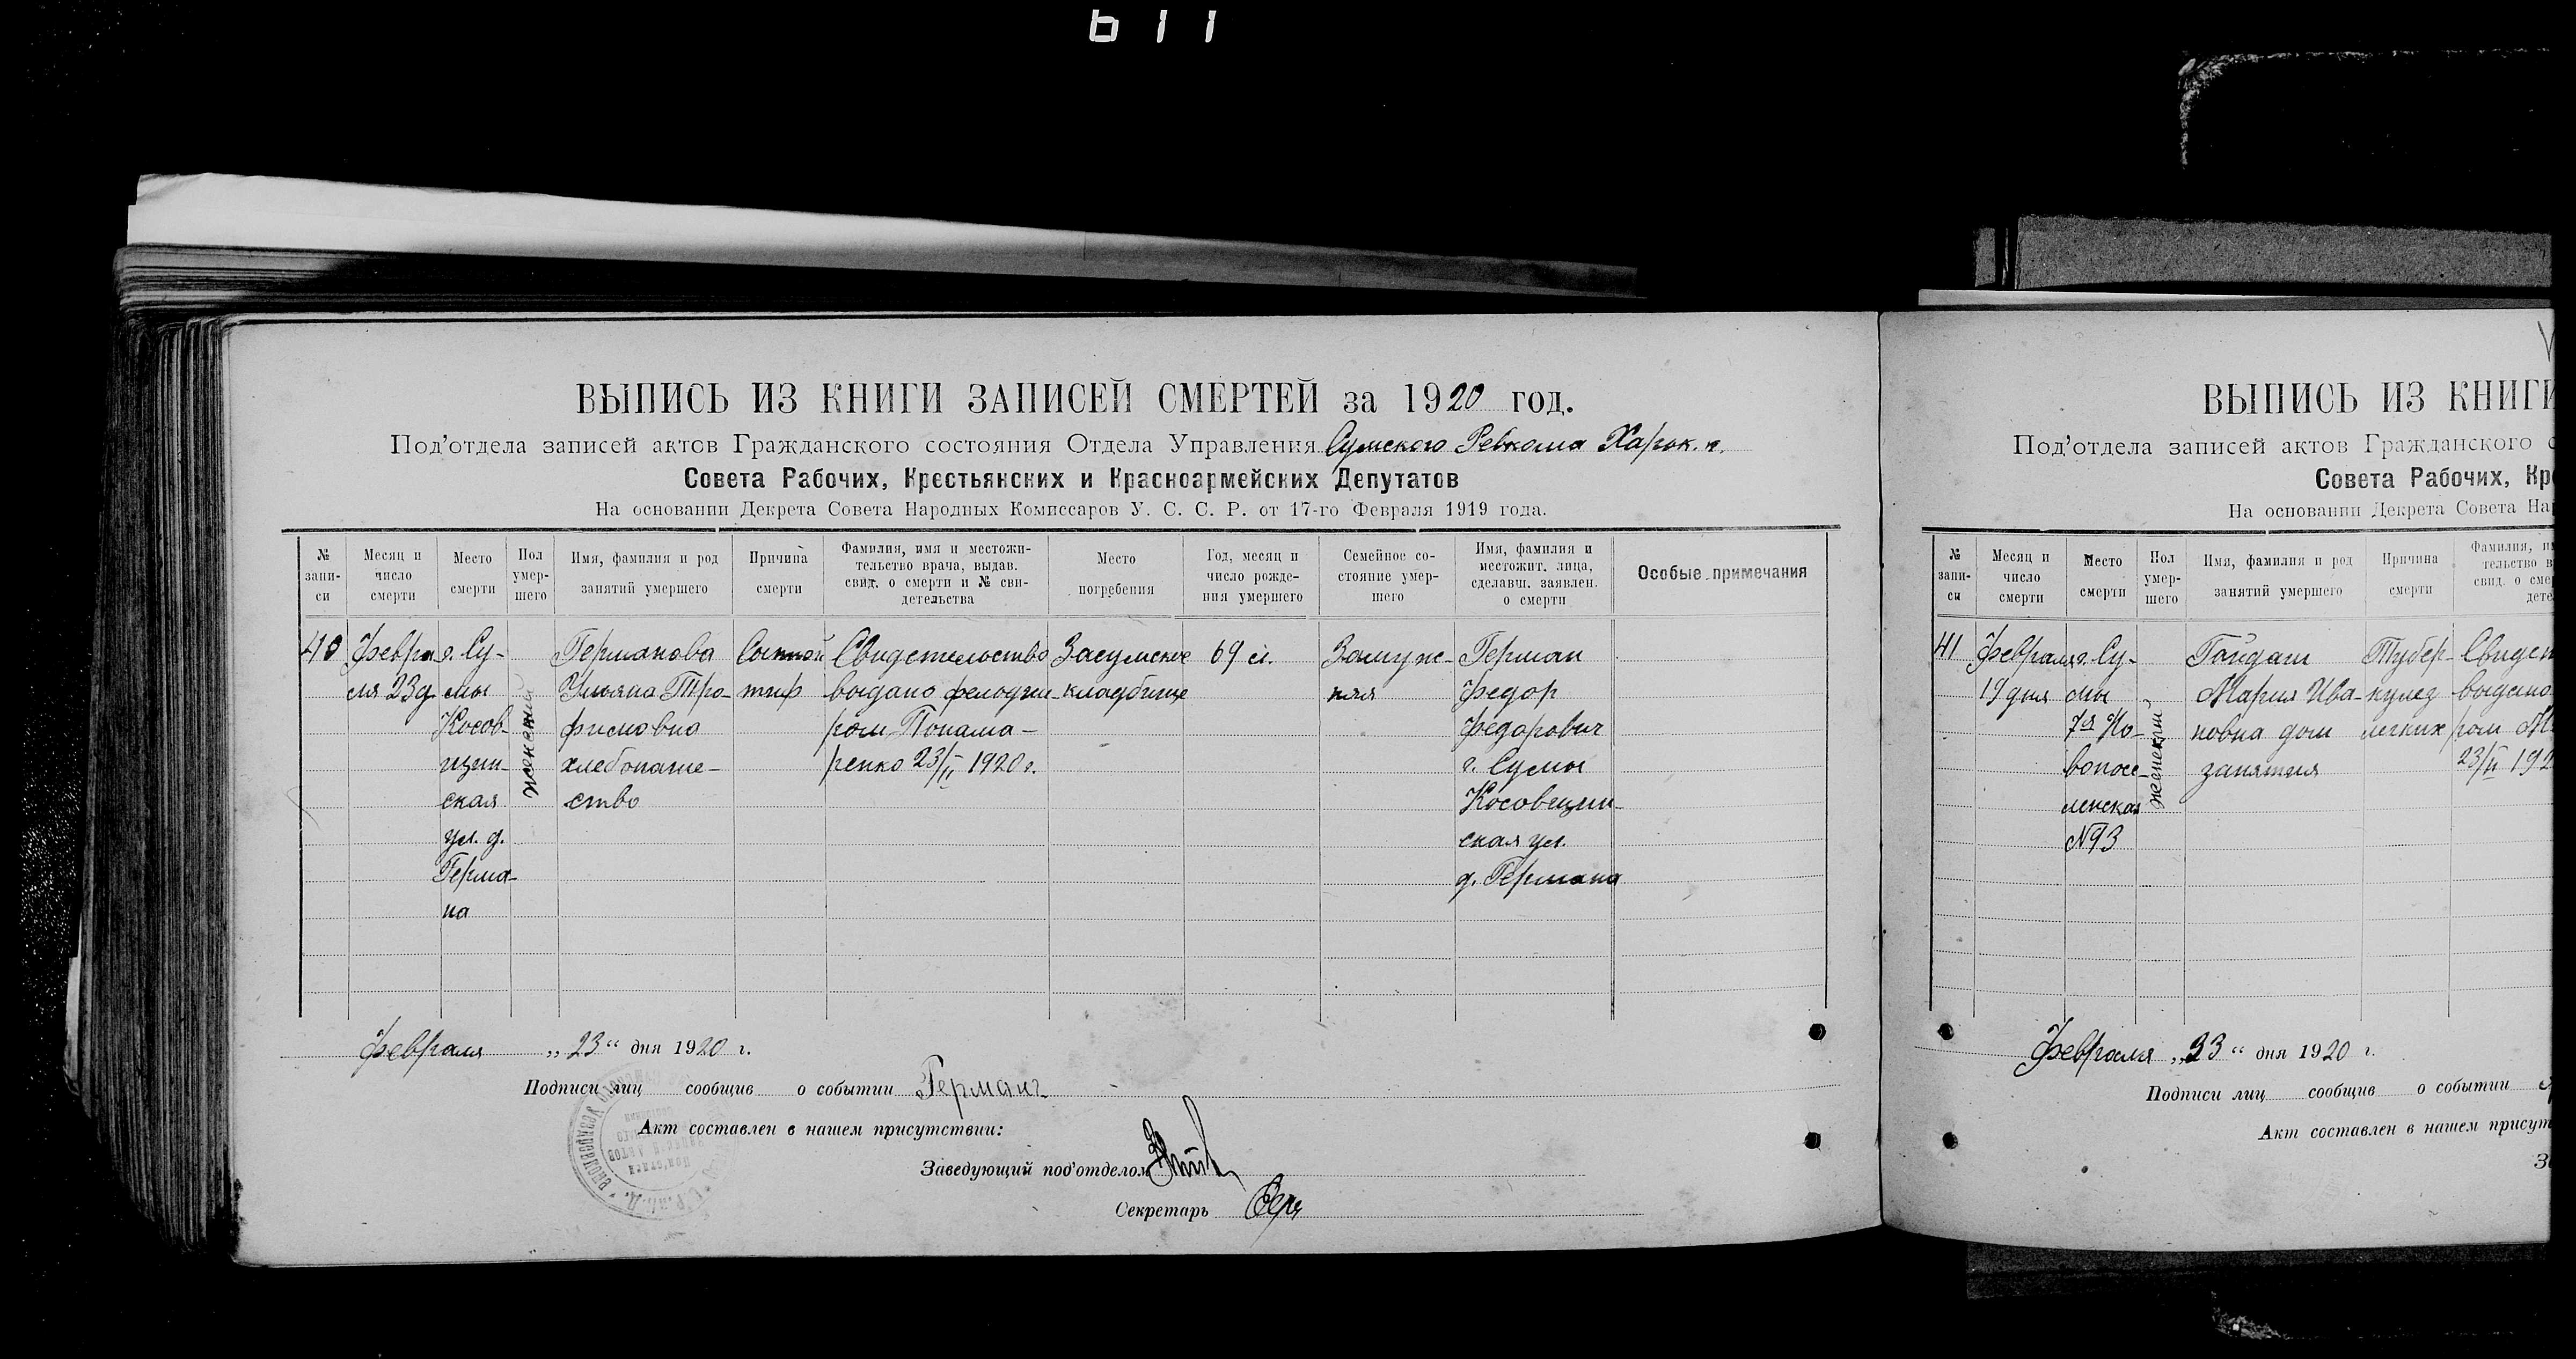 611
ВЫПИСЬ ИЗ КНИГИ ЗАПИСЕЙ СМЕРТЕЙ за 1920 год.
Под'отдела записей актов Гражданского состояния Отдела Управления Сумского Ревкома Харьк. г.
Совета Рабочих, Крестьянских и Красноармейских Депутатов
На основании Декрета Совета Народных Комиссаров У. С. С. Р. от 17-го Февраля 1919 года.
№ запи-
си
Месяц и
число
смерти
Место
смерти
Пол
умер-
шего
Имя, фамилия и род
занятий умершего
Причина
смерти
Фамилия, имя и местожи-
тельство врача, выдав.
свид. о смерти и № сви-
детельства
Место
погребения
Год, месяц и
число рожде-
ния умершего
Семейное со-
стояние умер-
шего
Имя, фамилия и
местожит. лица,
сделавш. заявлен.
о смерти
Особые примечания
40
Февра
ля 23д
г. Су-
мы
Косов-
щин-
ская
ул. д.
Герма-
на
женский
Германова
Ульяна Тро-
фимовна
хлебопаше-
ство
Сыпной
тиф
Свидетельство
выдано фельдше-
ром Понама-
ренко 23/II 1920 г.
Засумское
кладбище
69 л.
Замуж-
няя
Герман
Федор
Федорович
г. Сумы
Косовщин-
ская ул.
д. Германа
Февраля „23“ дня 1920 г.
Подписи лиц сообщив о событии Герман
Акт составлен в нашем присутствии:
Заведующий под'отделом
Секретарь
ВЫПИСЬ ИЗ КНИГИ
Под'отдела записей актов Гражданского с
Совета Рабочих, Кре
На основании Декрета Совета На
№
запи-
си
Месяц и
число
смерти
Место
смерти
Пол
умер-
шего
Имя, фамилия и род
занятий умершего
Причина
смерти
Фамилия, и
тельство в
свид. о сме
дете
41
Февраля
19 дня
г. Су-
мы
7я Но-
вопосе-
ленская
№93
женский
Гайдаш
Мария Ива-
новна дом
занятия
Тубер-
кулез
легких
Свидет
выдано
ром М
23/II 192
Февраля „23“ дня 1920 г.
Подписи лиц сообщив о событии
Акт составлен в нашем присут
За